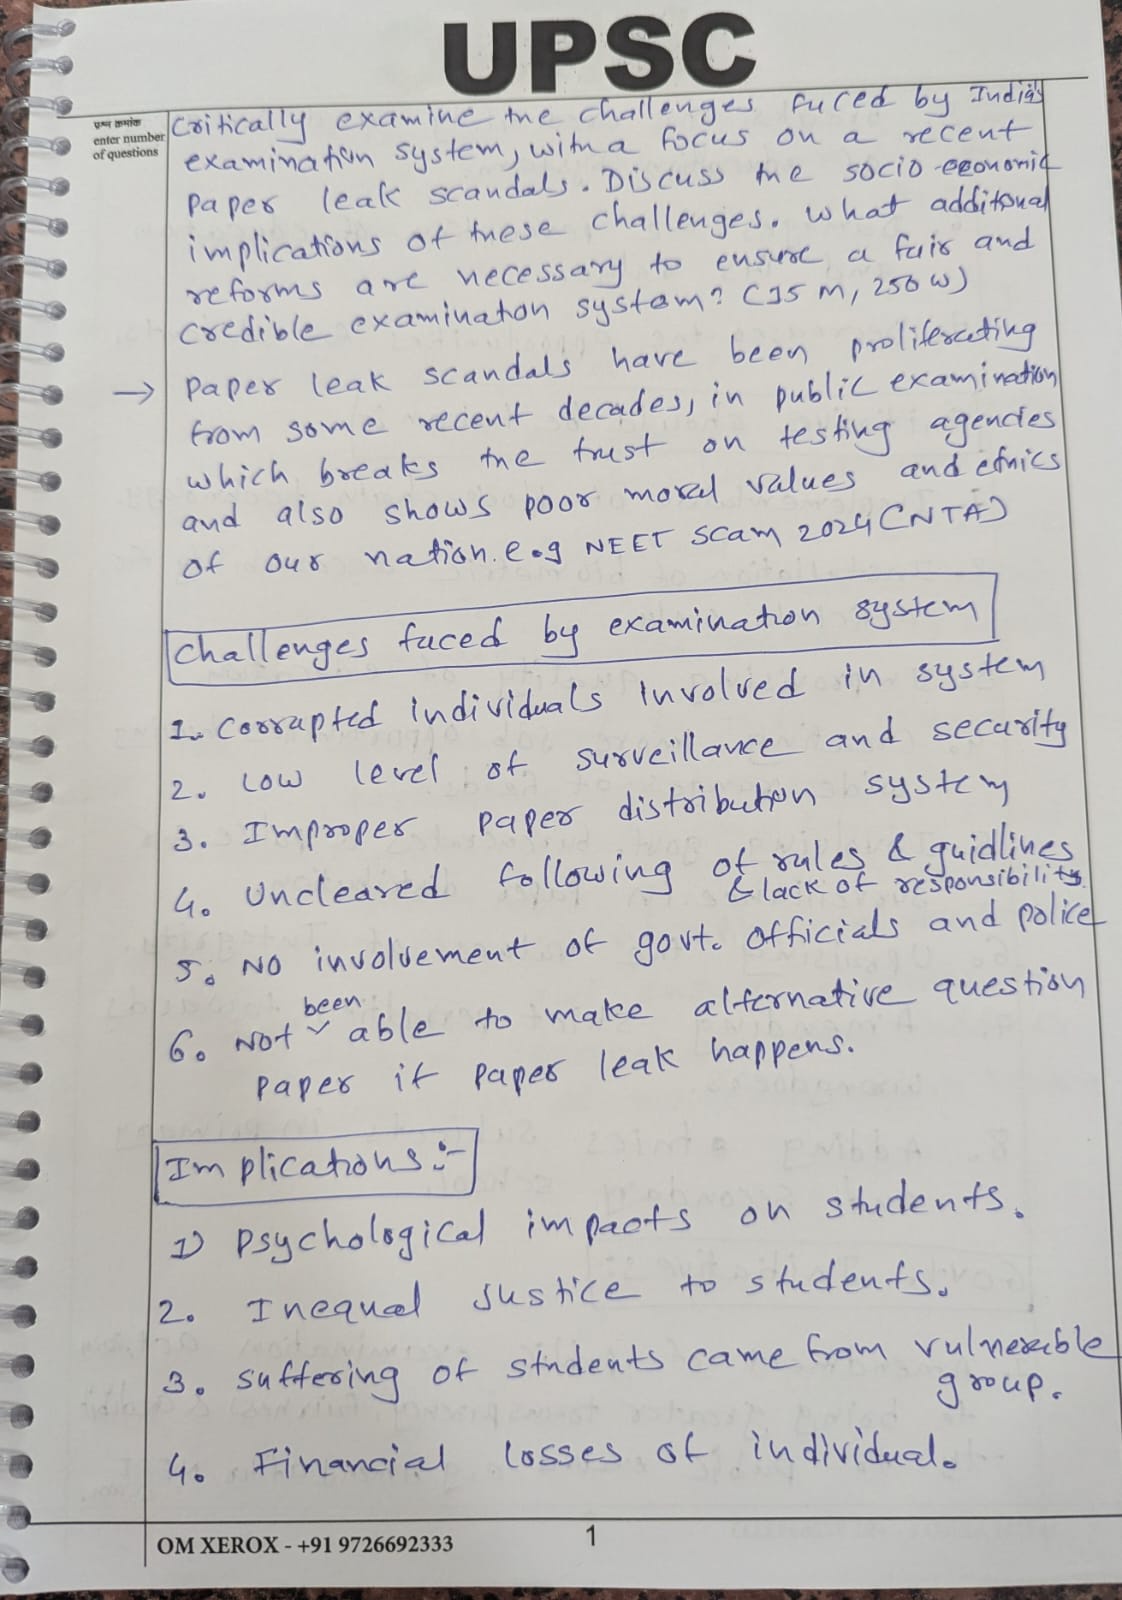 UPSC
प्रश्न क्रमांक
enter number
of questions
Critically examine the challenges faced by India's
examination system, with a focus on a recent
paper leak scandals. Discuss the socio-economic
implications of these challenges. What additional
reforms are necessary to ensure a fair and
credible examination system? (15 M, 250 W)
→ Paper leak scandals have been proliferating
from some recent decades, in public examination
which breaks the trust on testing agencies
and also shows poor moral values and ethics
of our nation. e.g NEET scam 2024 (NTA)
Challenges faced by examination system
1. Corrupted individuals involved in system
2. Low level of surveillance and security
3. Improper paper distribution system
4. Uncleared following of rules & guidlines
& lack of responsibility.
5. No involvement of govt. officials and police
been
6. Not ✓ able to make alternative question
paper if paper leak happens.
Implications :-
1) Psychological impacts on students.
2. Inequal justice to students.
3. Suffering of students came from vulnerable
group.
4. Financial losses of individual.
OM XEROX - +91 9726692333
1